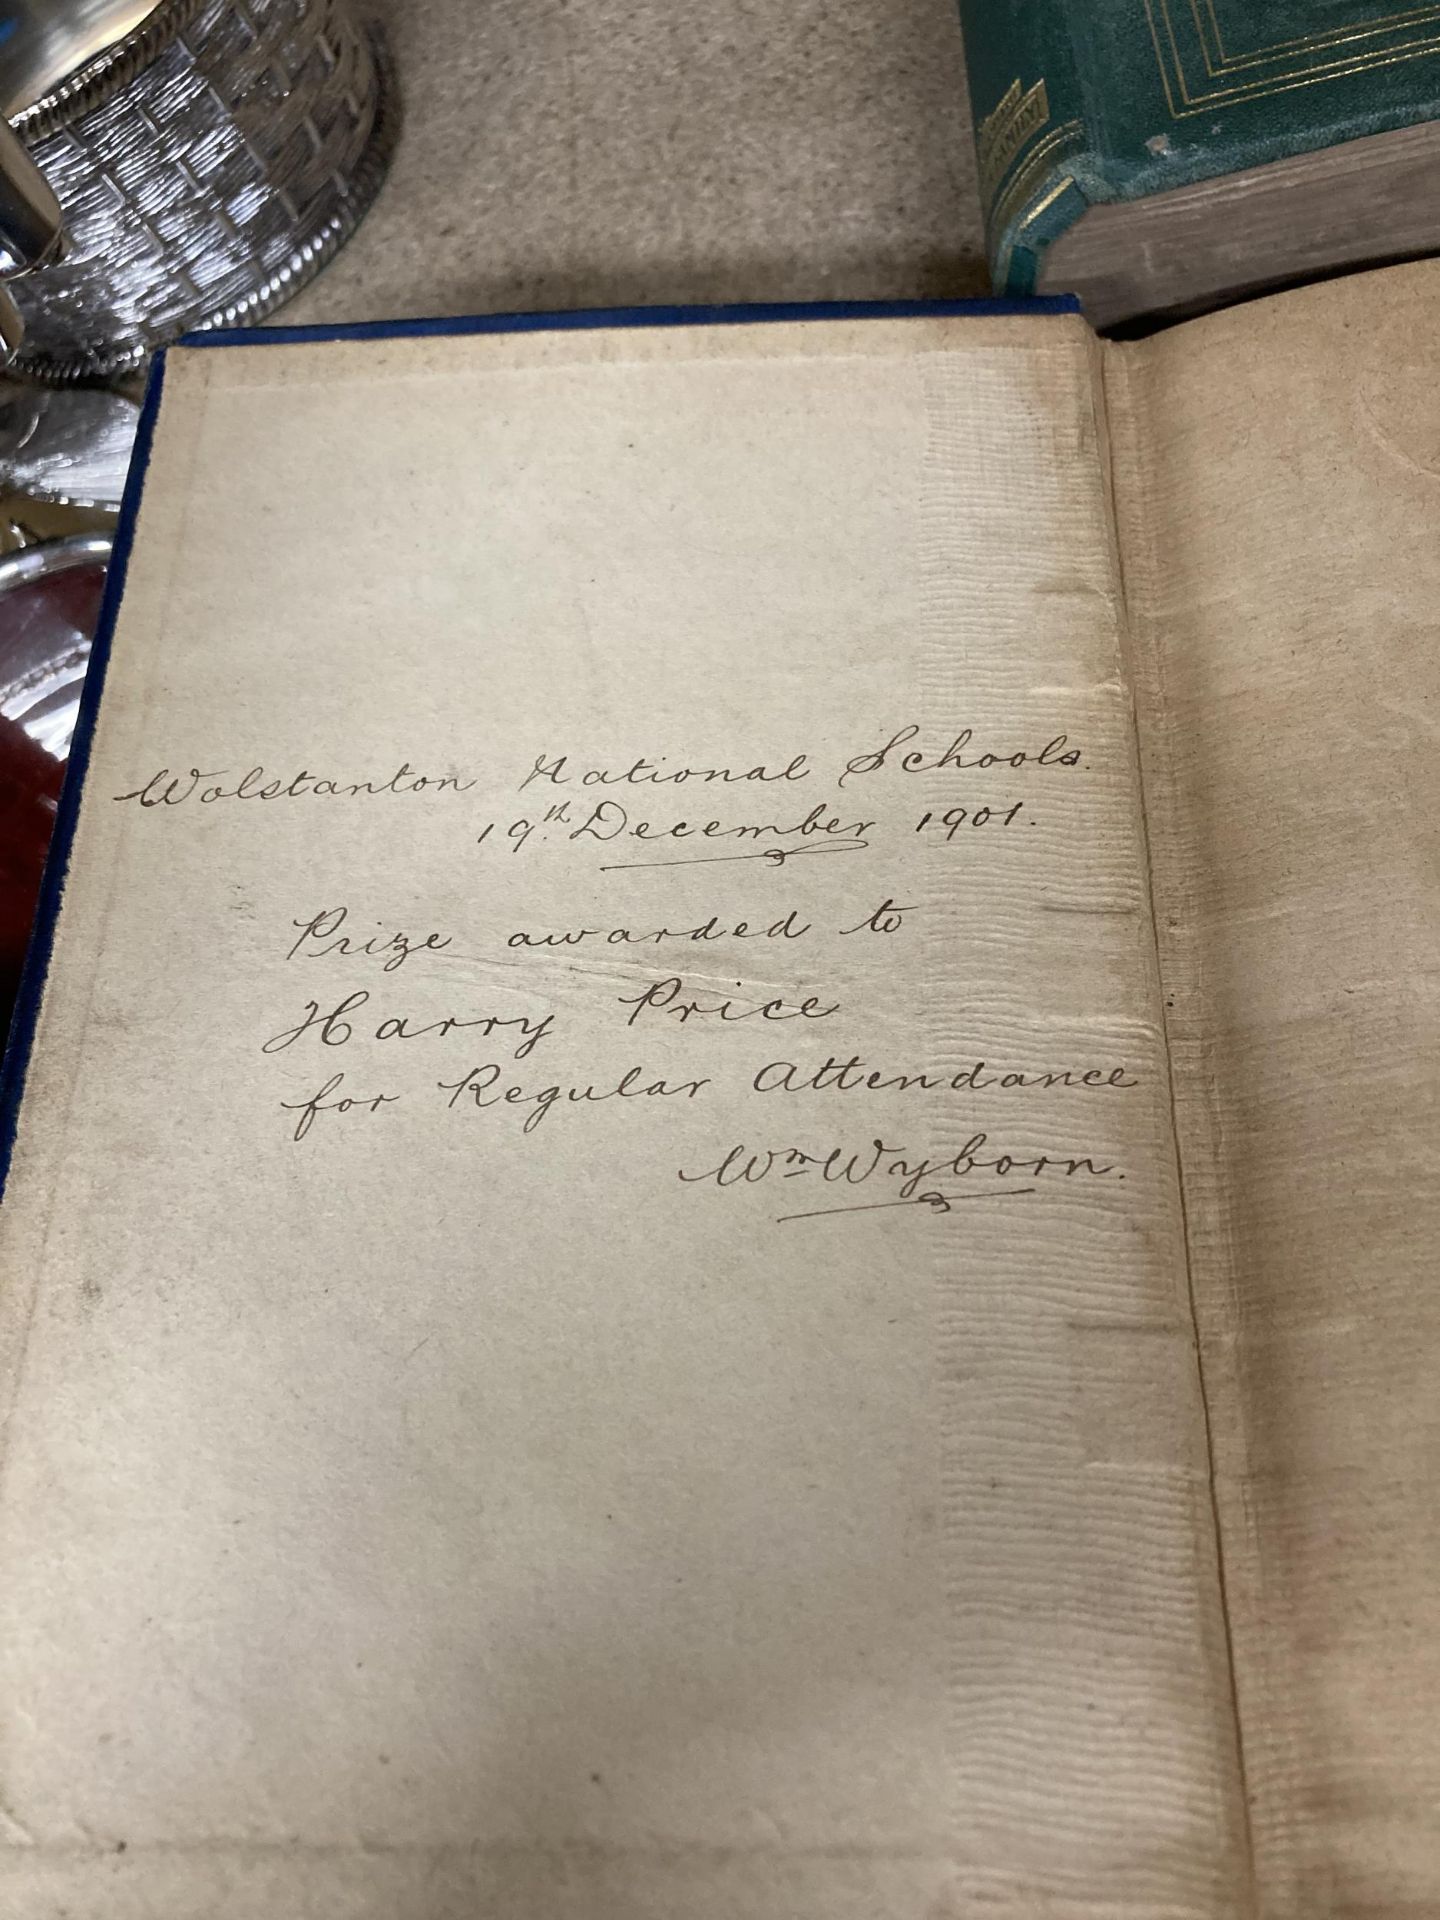 Wolstanton National Schools.
19th. December 1901.
Prize awarded to
Harry Price
for Regular Attendance
Wm Wyborn.